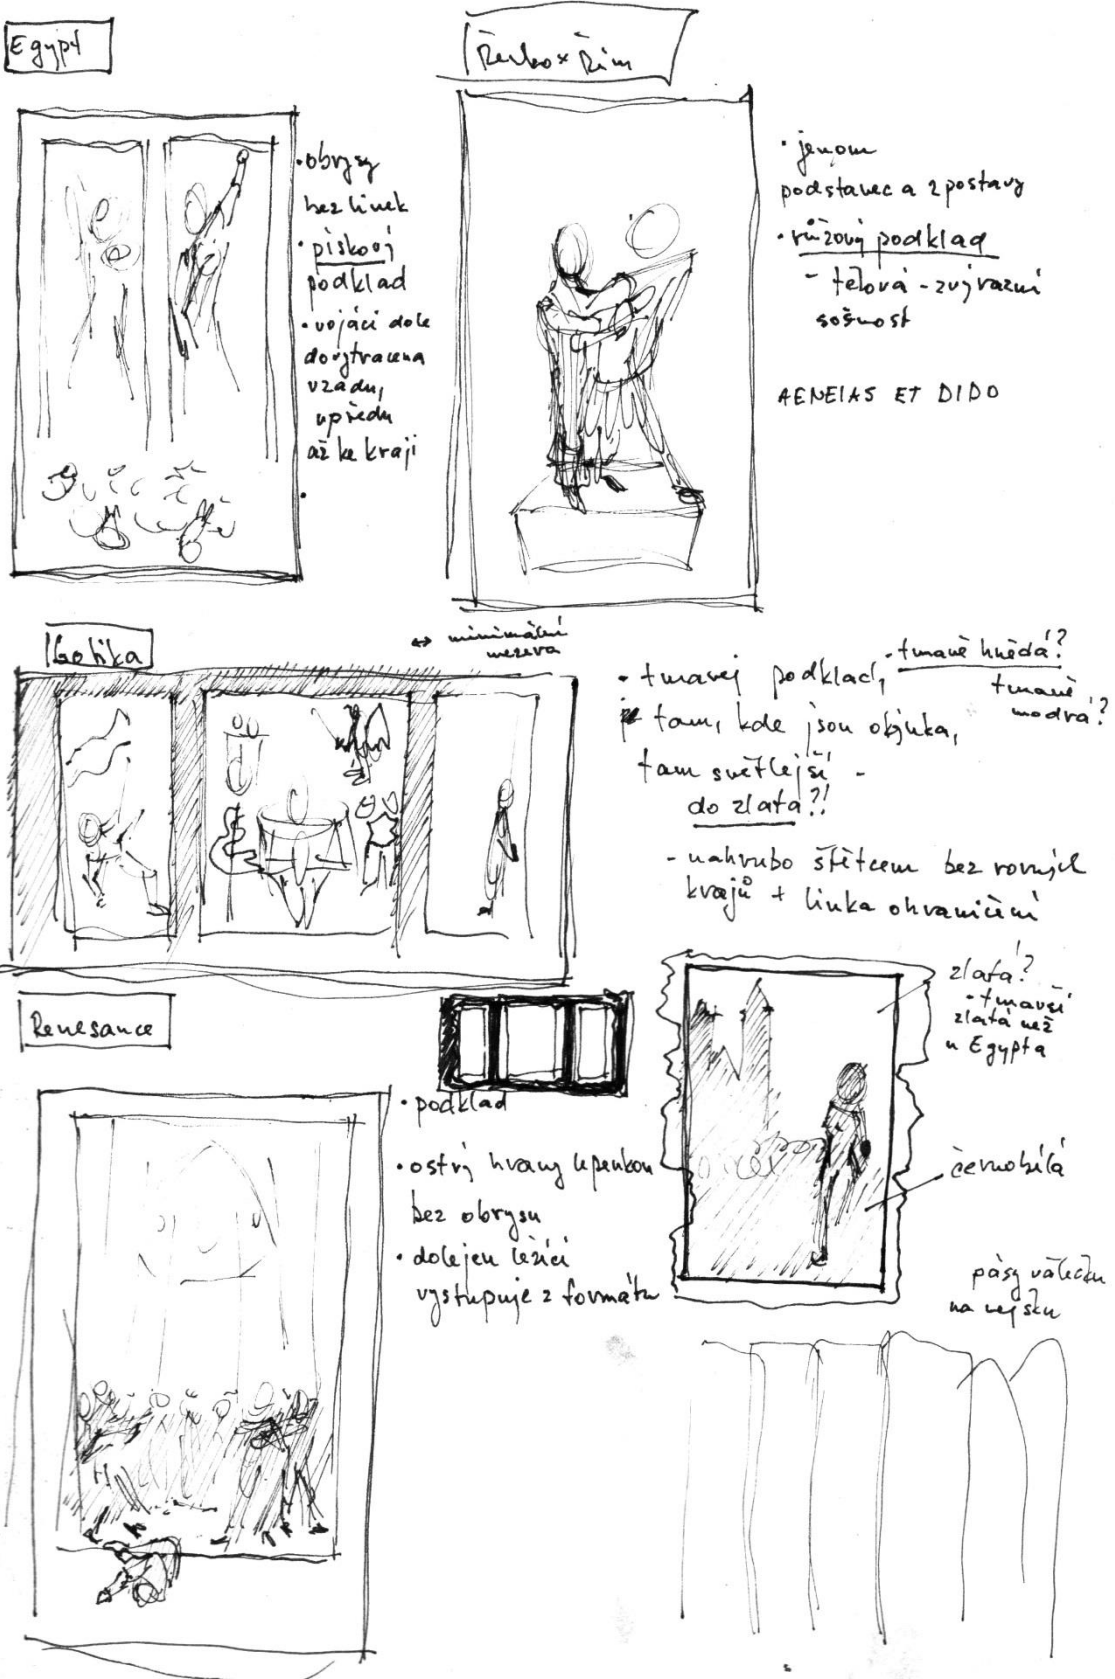 Egypt
• obrysy
bez linek
• pískový
podklad
• vojáci dole
do vytracena
vzadu,
vpředu
až ke kraji
•
Řecko × Řím
• jenom
podstavec a 2 postavy
• růžový podklad
- tělová - zvýrazní
sošnost
AENEIAS ET DIDO
Gotika
↔ minimální
mezera
• tmavej podklad, • tmavě hnědá?
tmavě
modrá?
tam, kde jsou okýnka,
tam světlejší -
do zlata?!
- nahrubo štětcem bez rovných
krajů + linka ohraničení
zlatá?
• tmavší
zlatá než
u Egypta
černobílá
Renesance
• podklad
• ostrý hrany lepenkou
bez obrysu
• dole jen ležící
vystupuje z formátu
pásy válečku